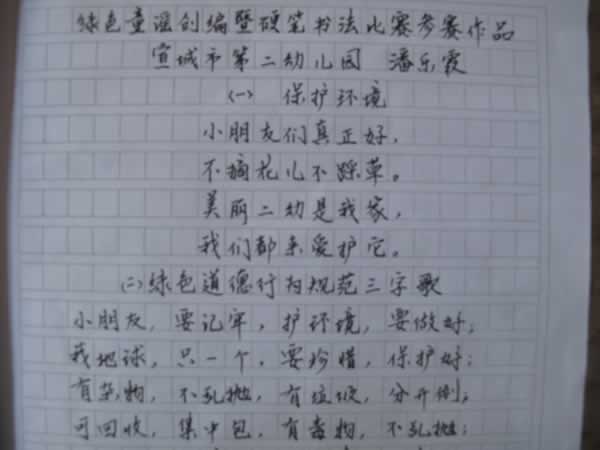 绿色童谣创编暨硬笔书法比赛参赛作品
宣城市第二幼儿园 潘乐霞
(一) 保护环境
小朋友们真正好,
不摘花儿不踩草。
美丽二幼是我家,
我们都来爱护它。
(二)绿色道德行为规范三字歌
小朋友,要记牢,护环境,要做好;
我地球,只一个,要珍惜,保护好;
有杂物,不乱抛,有垃圾,分开倒;
可回收,集中包,有毒物,不乱抛;